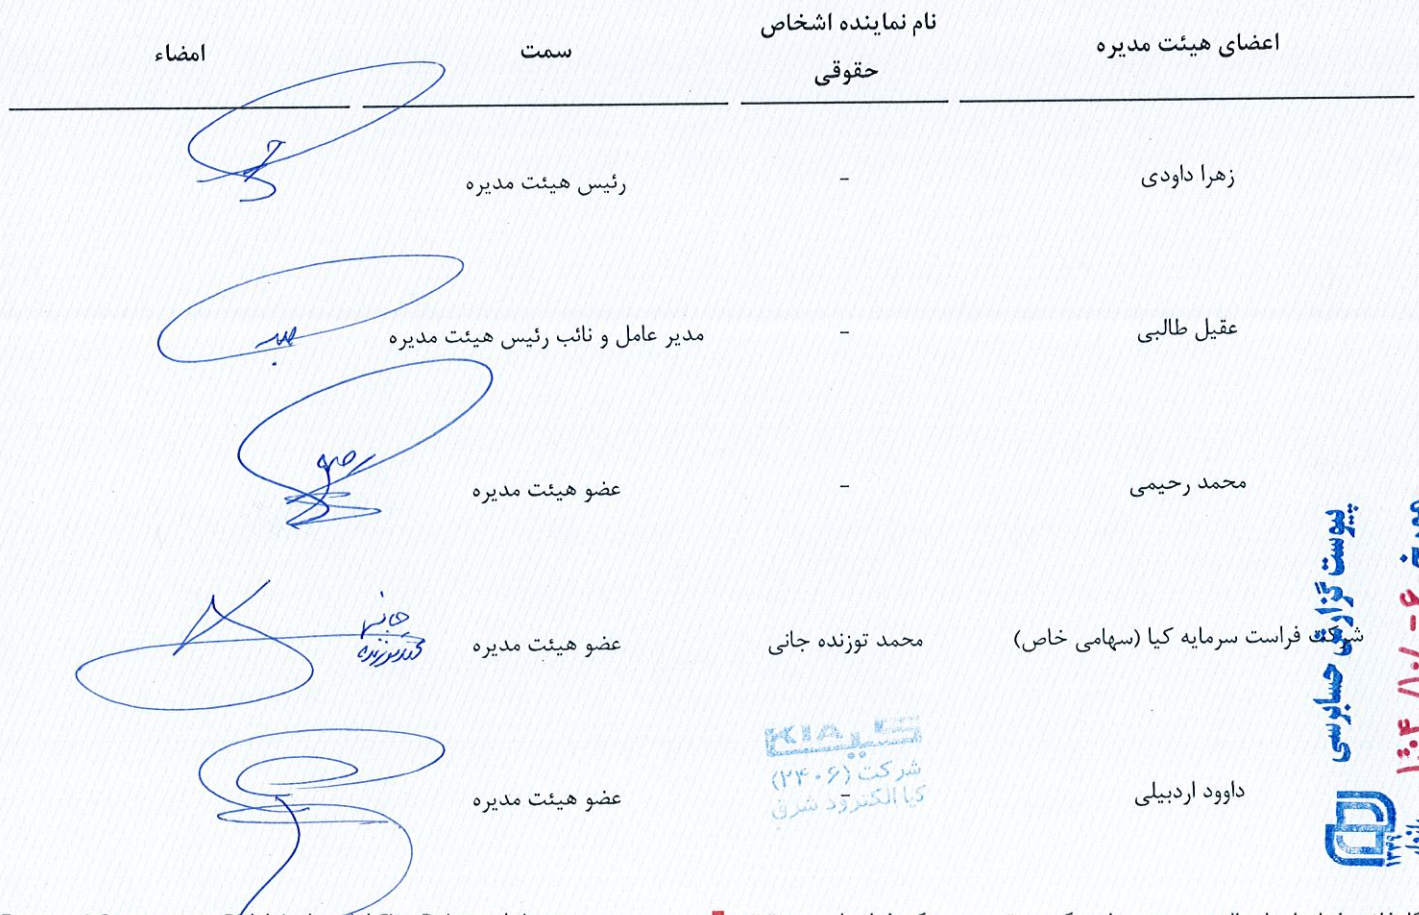 اعضای هیئت مدیره
نام نماینده اشخاص
حقوقی
سمت
امضاء
زهرا داودی
-
رئیس هیئت مدیره
عقیل طالبی
-
مدیر عامل و نائب رئیس هیئت مدیره
محمد رحیمی
-
عضو هیئت مدیره
شرکت فراست سرمایه کیا (سهامی خاص)
محمد توزنده جانی
عضو هیئت مدیره
داوود اردبیلی
-
عضو هیئت مدیره
KIA کیا
شرکت (۲۴۰۶)
کیا الکترود شرق
پیوست گزارش حسابرسی
مورخ ۶ - /۱۰/ ۱۴۰۴